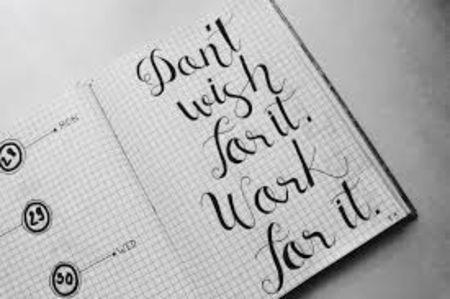 Don't
wish
for it.
Work
for it.
MON
29
WED
30